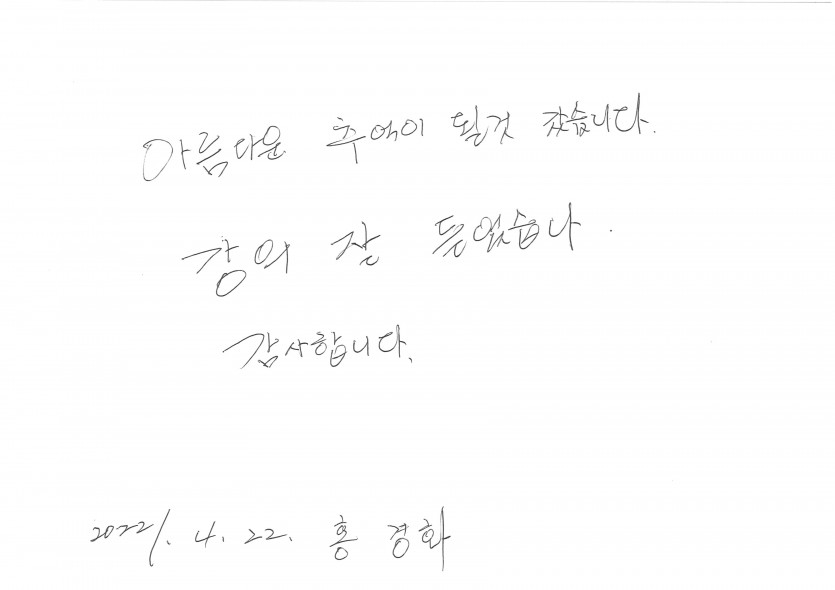 아름다운 추억이 될것 같습니다.
강의 잘 들었습니다.
감사합니다.
2022/. 4. 22. 홍 경화